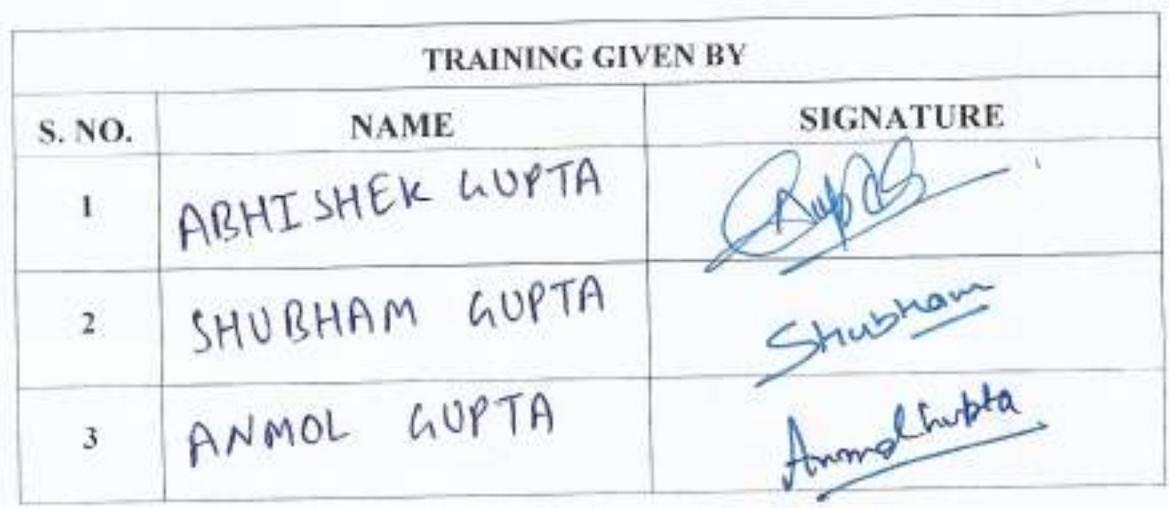 TRAINING GIVEN BY
S. NO. NAME SIGNATURE
1 ABHISHEK GUPTA
2 SHUBHAM GUPTA Shubham
3 ANMOL GUPTA Anmol Gupta